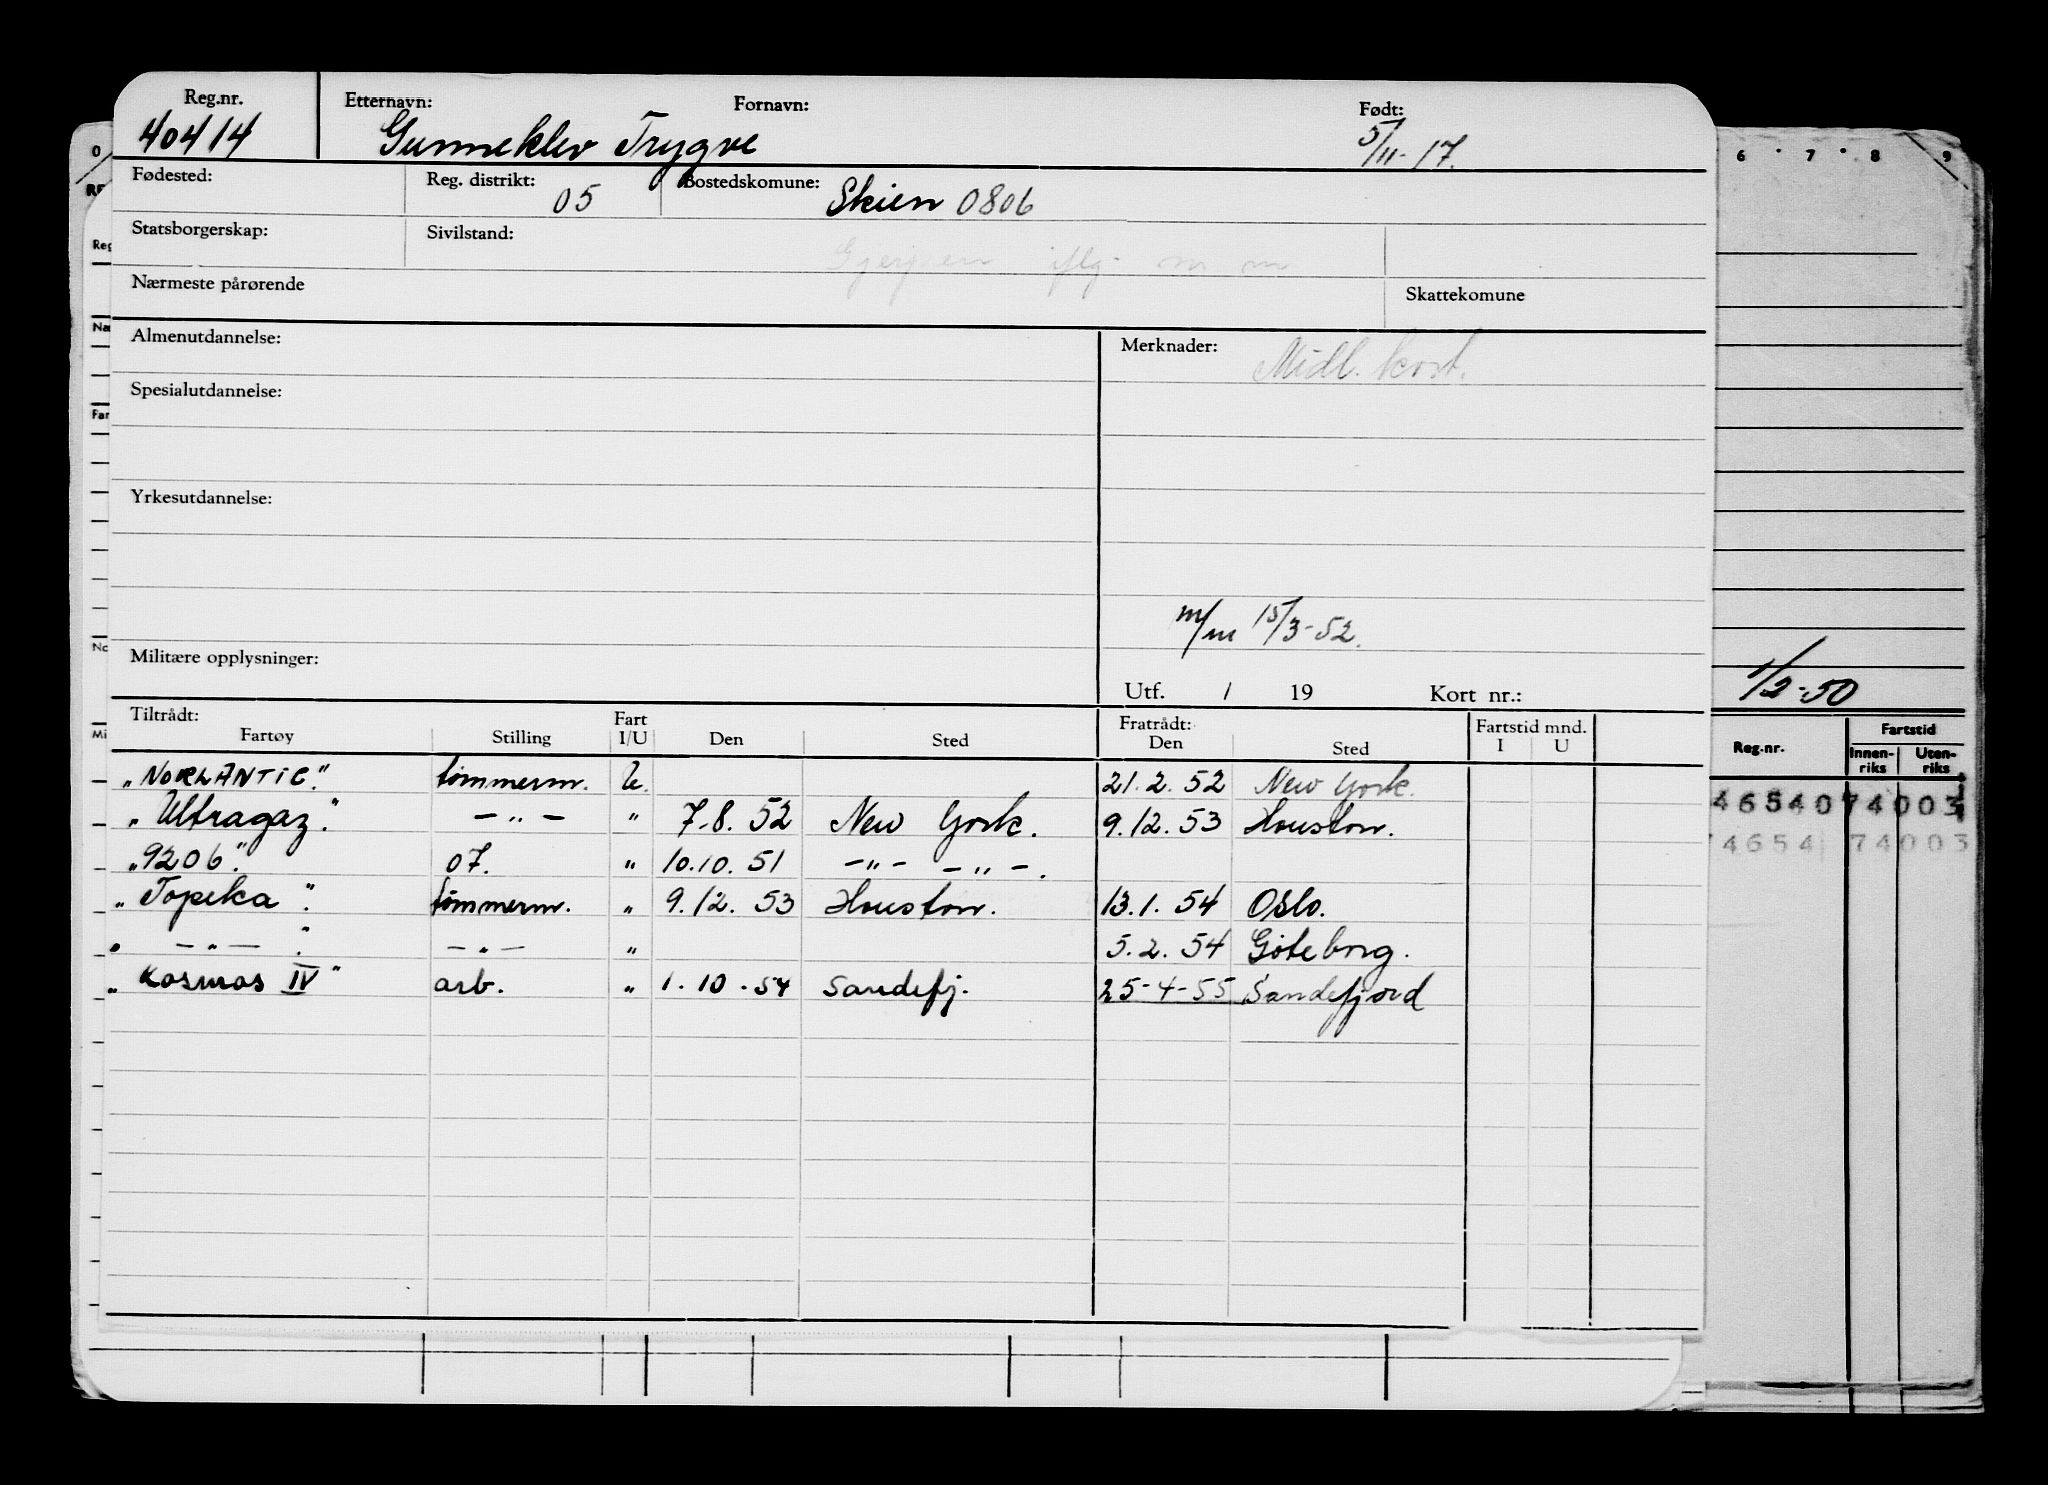 Reg.nr. Etternavn: Fornavn: Født:
40414 Gunneklev Trygve 5/11-17.
Fødested: Reg. distrikt: 05 Bostedskomune: Skien 0806
Statsborgerskap: Sivilstand:
Gjerpen iflg. m m
Nærmeste pårørende Skattekomune
Almenutdannelse: Merknader: Midl. kort.
Spesialutdannelse:
Yrkesutdannelse:
m/m 15/3-52.
Militære opplysninger:
Utf. / 19 Kort nr.:
Tiltrådt: Fratrådt:
Fartøy Stilling Fart I/U Den Sted Den Sted Fartstid mnd. I U
"NORLANTIC". tømmerm. U. 21.2.52 New York.
"Ultragaz". -"- " 7.8.52 New York. 9.12.53 Houston.
"9206". 07. " 10.10.51 -"- -"-.
"Topeka". tømmerm. " 9.12.53 Houston. 13.1.54 Oslo.
" -"- ". -"- " 5.2.54 Göteborg.
"Kosmos IV" arb. " 1.10.54 Sandefj. 25-4-55 Sandefjord
0
RE
Reg
Næ
Far
No
Mi
6 7 8 9
1/2-50
Reg.nr. Fartstid
Innen-riks Uten-riks
46540 74003
74654 74003